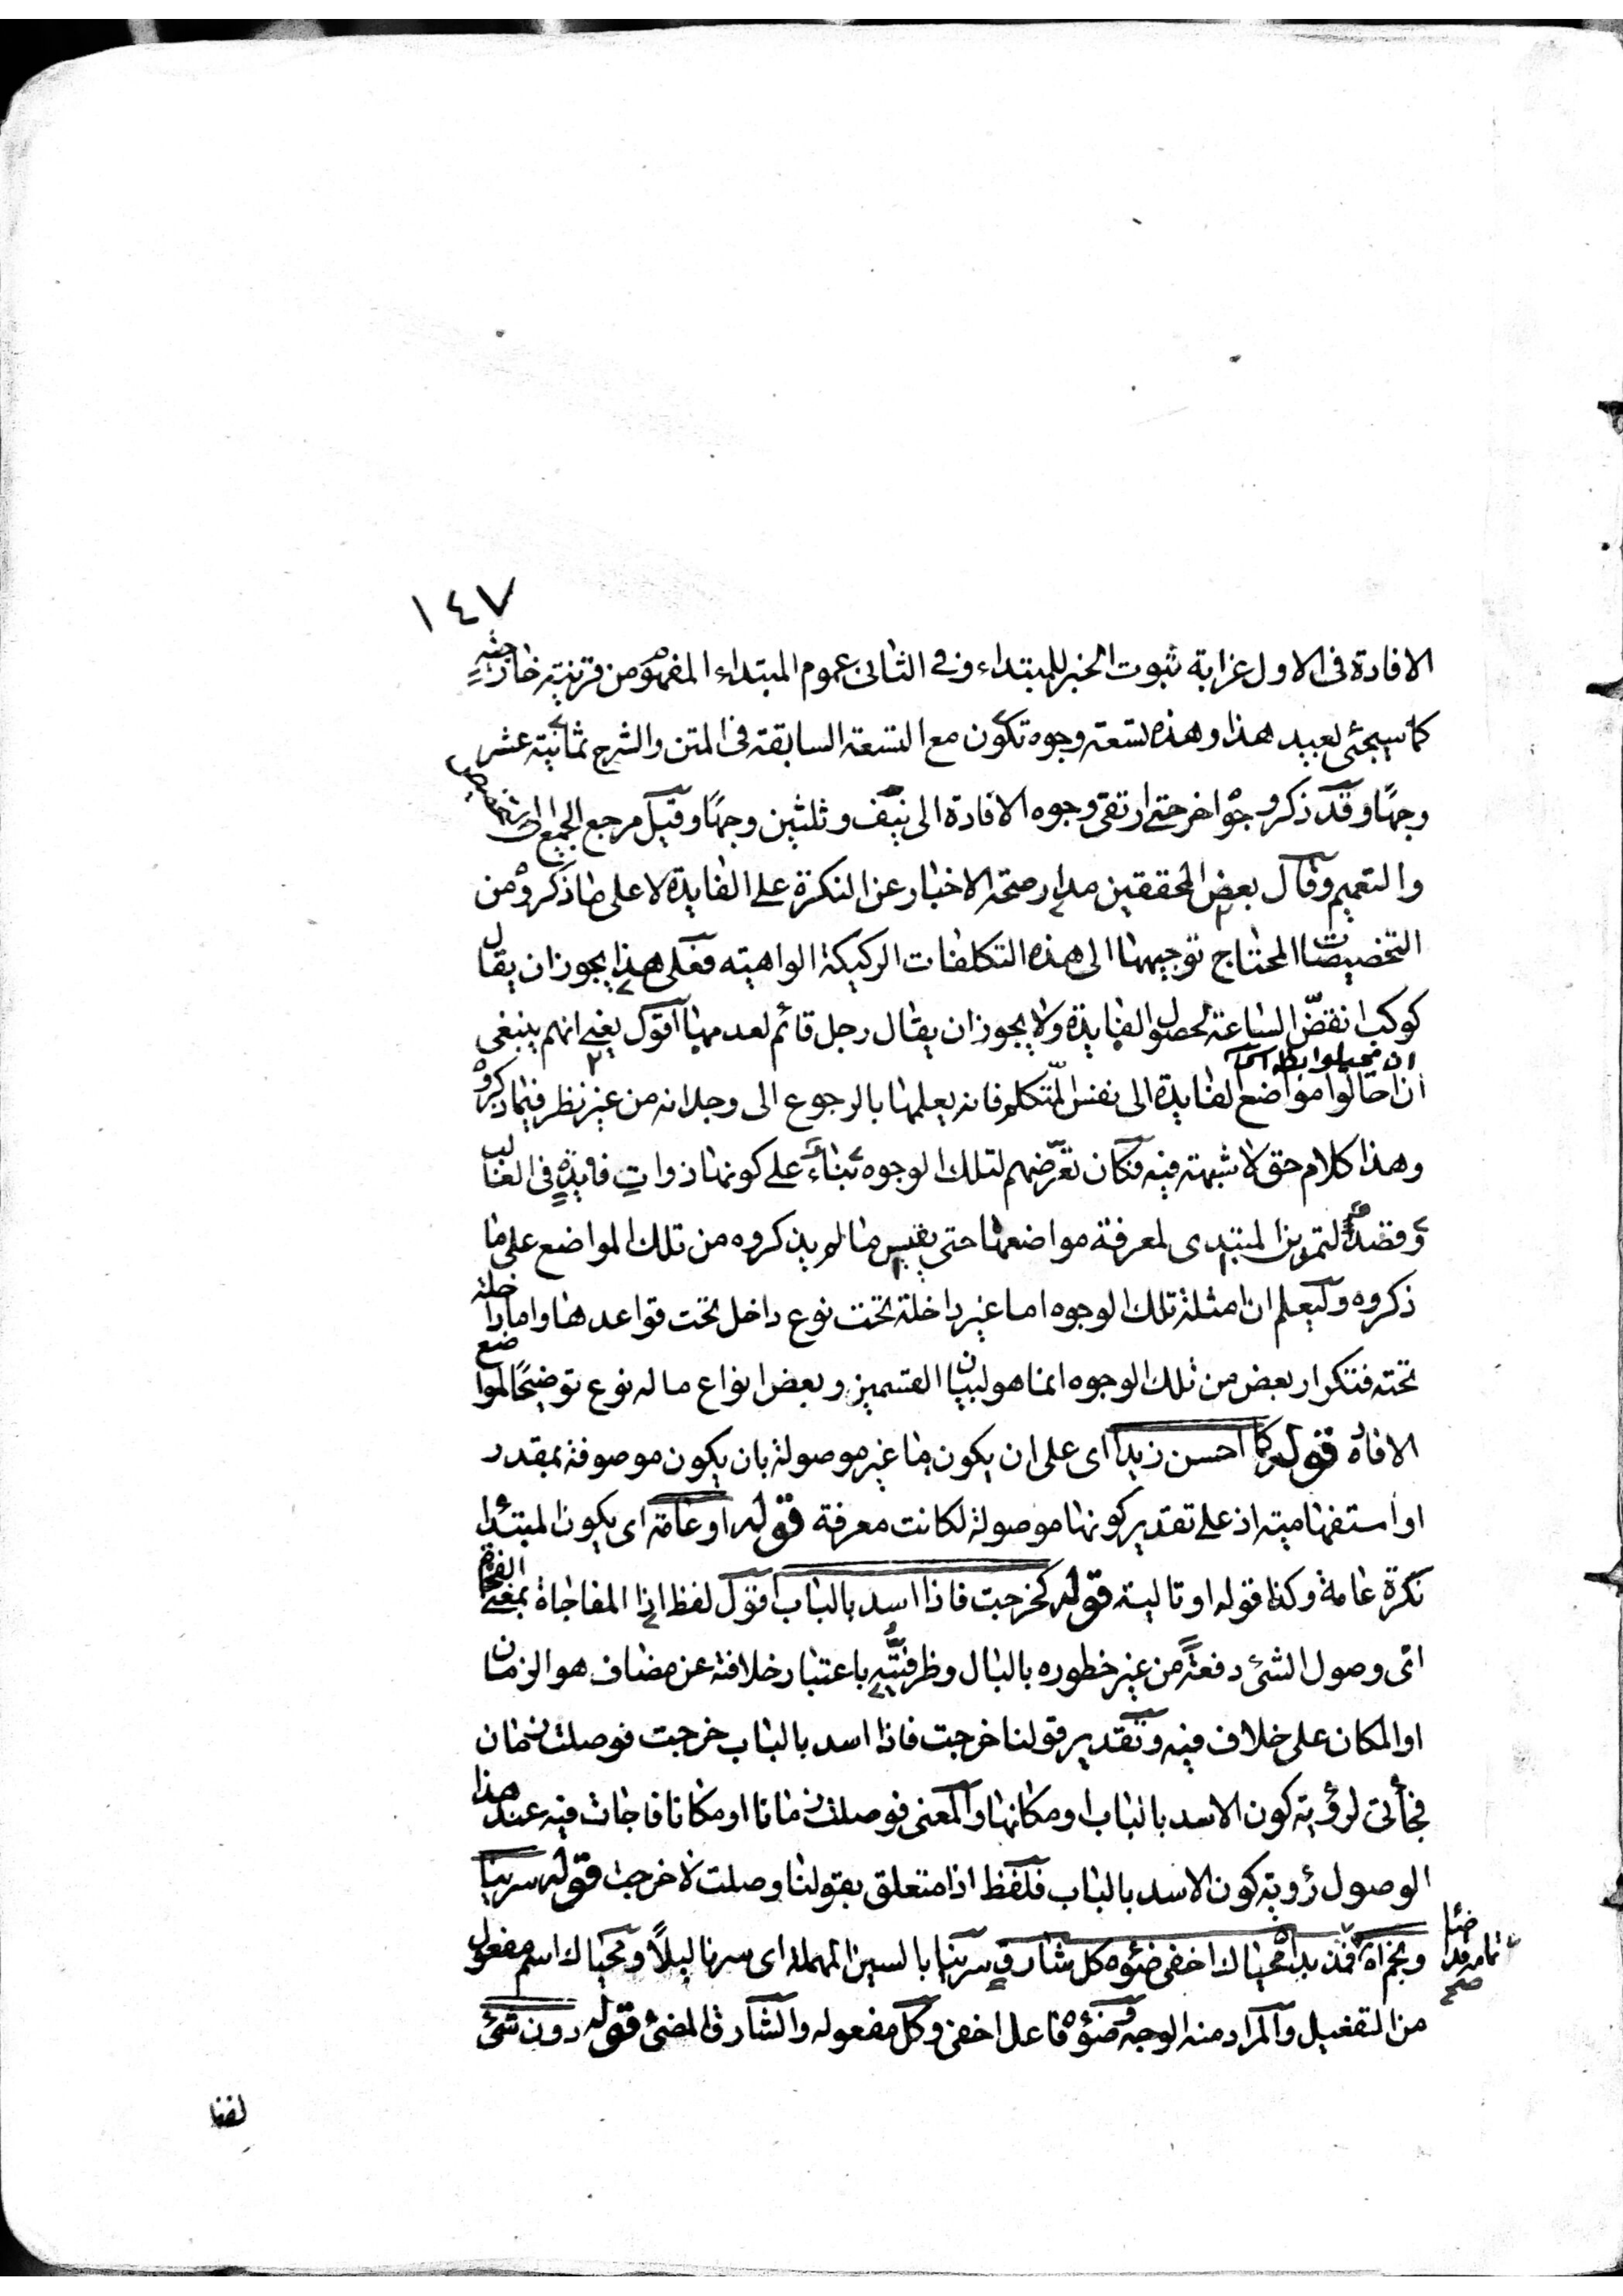 ١٤٧
الافادة فى الاول غرابة ثبوت الخبر للمبتداء وفى الثانى عموم المبتداء المفهوم من قرينة خارجية
كما سيجئ بعيد هذا وهذه تسعة وجوه تكون مع التسعة السابقة فى المتن والشرح ثمانية عشر
وجهًا وقد ذكر وجوه اخر حتى ارتقى وجوه الافادة الى نيّف وثلثين وجهًا وقيل مرجع الجميع التخصيص
والتعميم وقال بعض المحققين مدار صحة الاخبار عن النكرة على الفايدة لا على ما ذكروه من
التخصيصات المحتاج توجيهها الى هذه التكلفات الركيكة الواهية فعلى هذا يجوز ان يقال
كوكب انقضّ الساعة لحصول الفايدة ولا يجوز ان يقال رجل قائم لعدمها اقول يعنى انهم ينبغى
ان احالوا مواضع الفايدة الى نفس المتكلم فانه يعلمها بالرجوع الى وجدانه من غير نظر فيما ذكروه
وهذا كلام حق لا شبهة فيه فكان تعرّضهم لتلك الوجوه بناءً على كونها ذوات فايدةٍ فى الغالب
وقصدًا لتمرين المبتدى لمعرفة مواضعها حتى يقيس ما لم يذكروه من تلك المواضع على ما
ذكروه وليعلم ان امثلة تلك الوجوه اما غير داخلة تحت نوع داخل تحت قواعدها واما داخلة
تحته فتكرار بعض من تلك الوجوه انما هو لبيان القسمين وبعض انواع ما له نوع توضيحًا لمواضع
الافادة قوله كما احسن زيدا اى على ان يكون ما غير موصولة بان يكون موصوفة بمقدر
او استفهامية اذ على تقدير كونها موصولة لكانت معرفة قوله او عامة اى يكون المبتدأ
نكرة عامة وكذا قوله او تالية قوله كخرجت فاذا اسد بالباب اقول لفظ اذا المفاجاة بمعنى الفجاة
اى وصول الشئ دفعةً من غير خطوره بالبال وظرفيّته باعتبار خلافته عن مضاف هو الزمان
او المكان على خلاف فيه وتقدير قولنا خرجت فاذا اسد بالباب خرجت فوصلت زمان
فجأتى لرؤية كون الاسد بالباب او مكانها والمعنى فوصلت زمانا او مكانا فاجات فيه عند هذا
الوصول رؤية كون الاسد بالباب فلفظ اذا متعلق بقولنا وصلت لا خرجت قوله سرينا
ونجم قد اضاء فمذ بدا محياك اخفى ضوؤه كل شارق سرينا بالسين المهملة اى سرنا ليلاً ومحياك اسم مفعول
من التفعيل والمراد منه الوجه وضوؤه فاعل اخفى وكل مفعوله والشارق المضئ قوله دون شئ